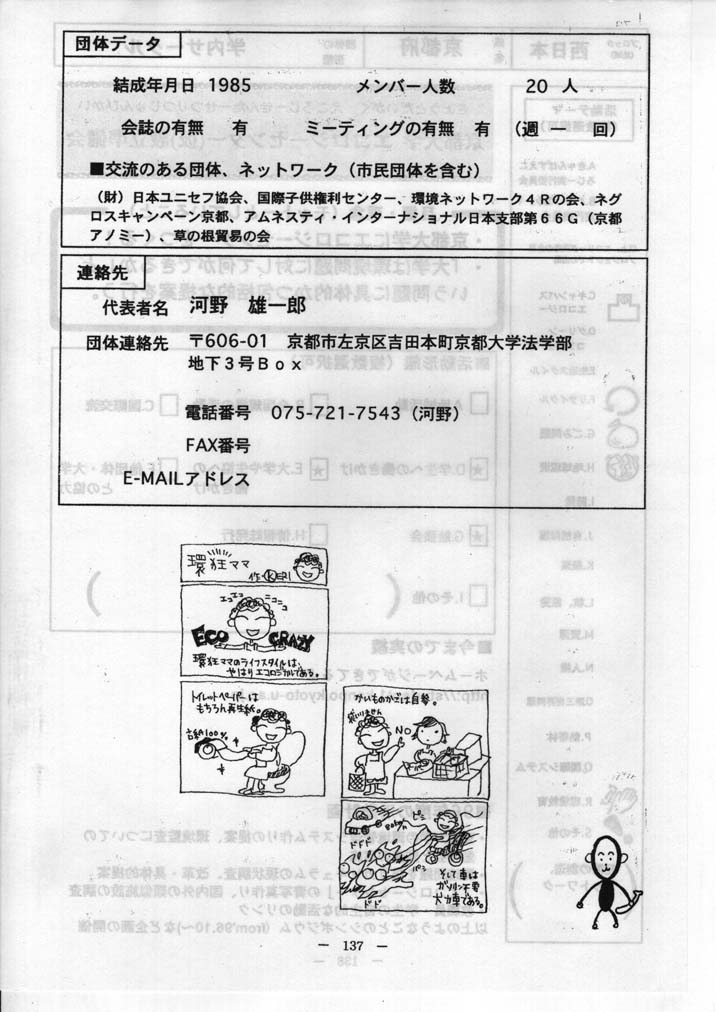 団体データ
結成年月日 1985　メンバー人数　20 人
会誌の有無　有　ミーティングの有無　有（週一　回）
■交流のある団体、ネットワーク（市民団体を含む）
（財）日本ユニセフ協会、国際子供権利センター、環境ネットワーク４Ｒの会、ネグ
ロスキャンペーン京都、アムネスティ・インターナショナル日本支部第６６Ｇ（京都
アノミー）、草の根貿易の会
連絡先
代表者名　河野　雄一郎
団体連絡先　〒606-01　京都市左京区吉田本町京都大学法学部
地下３号Ｂｏｘ
電話番号　075-721-7543（河野）
FAX番号
E-MAILアドレス
環狂ママ
作・KERI
エコエコ
ニコニコ
ECO CRAZY
環狂ママのライフスタイルは、
やはりエコロジカルである。
トイレットペーパーは
もちろん再生紙。
古紙100%
かいものかごは自参。
袋いりません
NO
ドドド
ドド
そして車は
ガソリン不要
犬力車である。
― 137 ―